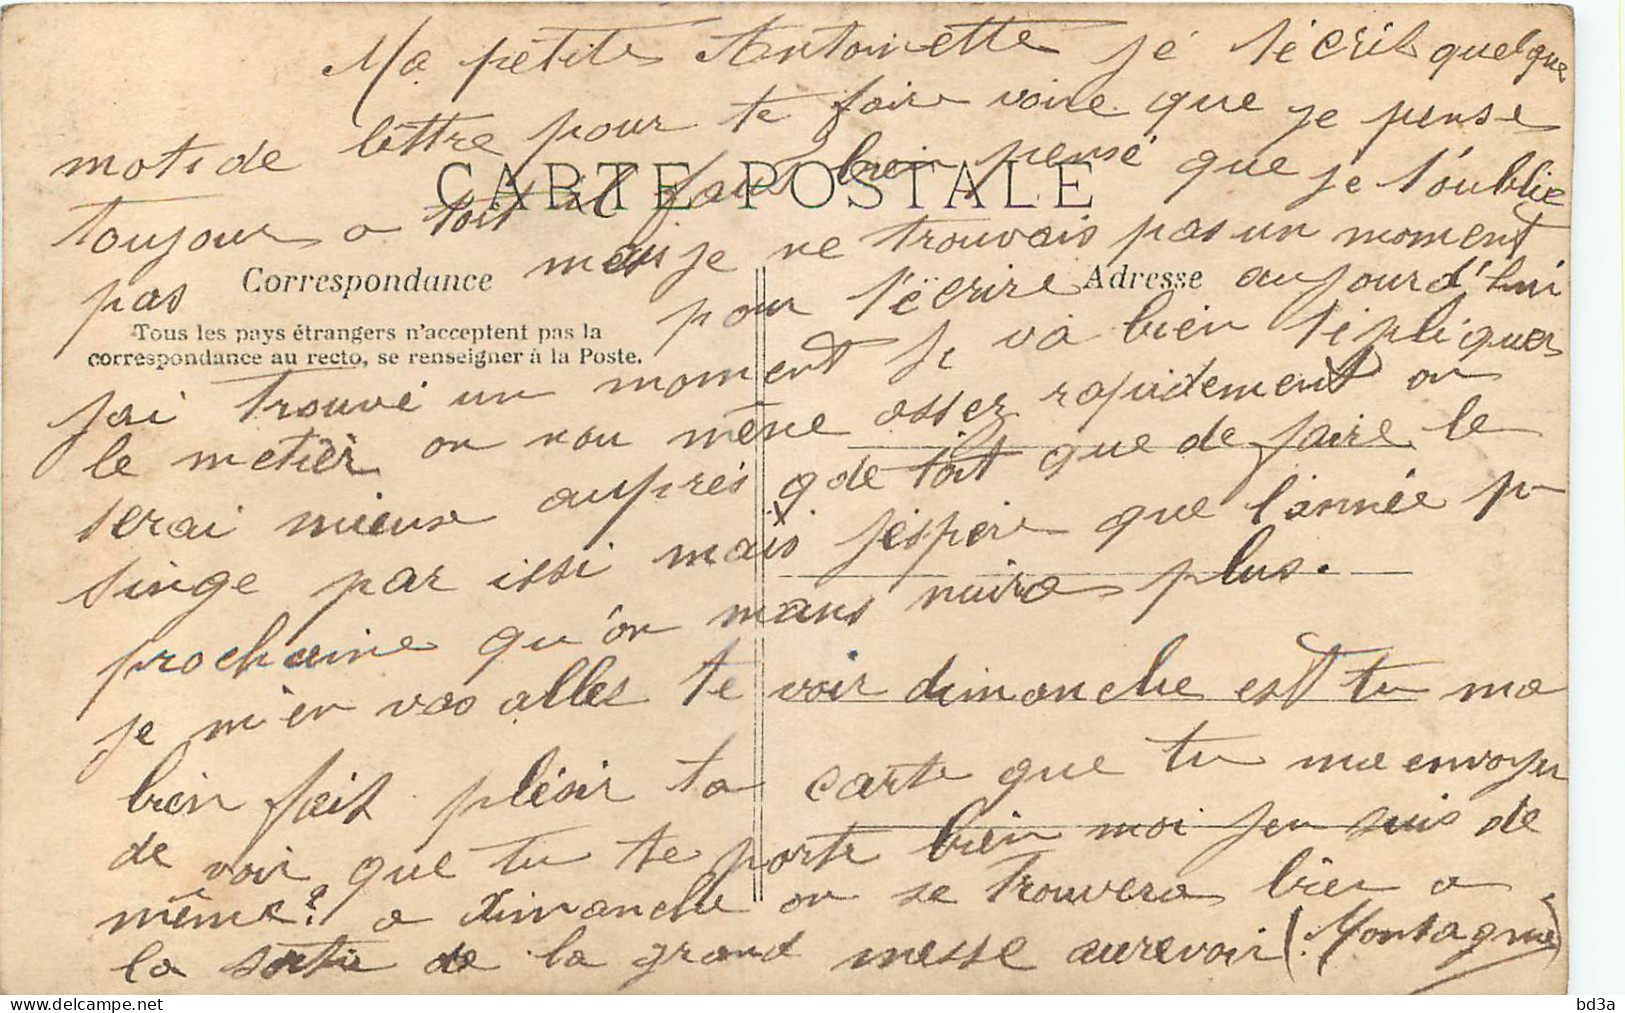 Ma petite Antoinette je t'écrit quelque
mots de lettre pour te faire voire que je pense
CARTE POSTALE
toujour a toit il faus bien pensé que je t'oublie
pas mais je ne trouvais pas un moment
Correspondance
Adresse
pour t'ecrire aujourd'hui
Tous les pays étrangers n'acceptent pas la
correspondance au recto, se renseigner à la Poste.
jai trouvé un moment je va bien t'epliquer
le metièr on nou mène asser rapidement on
serai mieux auprés de toit que de faire le
singe par issi mais j'éspère que l'année p
prochaine qu'on mans nuira plus.
je m'en vas alles te voir dimanche est tu ma
bien fait plésir ta carte que tu ma envoyu
de voir que tu te porte bien moi jen suis de
même? a dimanche on se trouvera bien a
la sortie de la grand messe aurevoir (Montagne)
bd3a